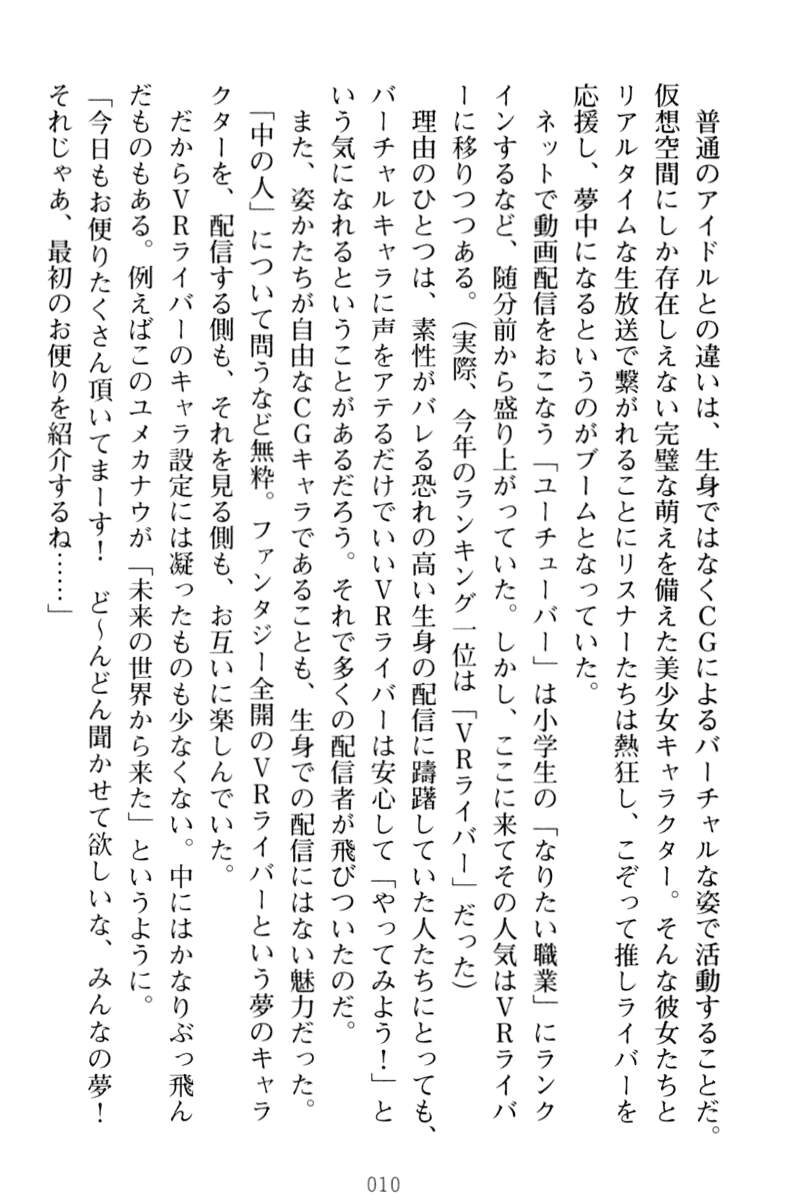 普通のアイドルとの違いは、生身ではなくＣＧによるバーチャルな姿で活動することだ。
仮想空間にしか存在しえない完璧な萌えを備えた美少女キャラクター。そんな彼女たちと
リアルタイムな生放送で繋がれることにリスナーたちは熱狂し、こぞって推しライバーを
応援し、夢中になるというのがブームとなっていた。
　ネットで動画配信をおこなう「ユーチューバー」は小学生の「なりたい職業」にランク
インするなど、随分前から盛り上がっていた。しかし、ここに来てその人気はＶＲライバ
ーに移りつつある。（実際、今年のランキング一位は「ＶＲライバー」だった）
　理由のひとつは、素性がバレる恐れの高い生身の配信に躊躇していた人たちにとっても、
バーチャルキャラに声をアテるだけでいいＶＲライバーは安心して「やってみよう！」と
いう気になれるということがあるだろう。それで多くの配信者が飛びついたのだ。
　また、姿かたちが自由なＣＧキャラであることも、生身での配信にはない魅力だった。
　「中の人」について問うなど無粋。ファンタジー全開のＶＲライバーという夢のキャラ
クターを、配信する側も、それを見る側も、お互いに楽しんでいた。
　だからＶＲライバーのキャラ設定には凝ったものも少なくない。中にはかなりぶっ飛ん
だものもある。例えばこのユメカナウが「未来の世界から来た」というように。
「今日もお便りたくさん頂いてまーす！　ど〜んどん聞かせて欲しいな、みんなの夢！
それじゃあ、最初のお便りを紹介するね……」
010